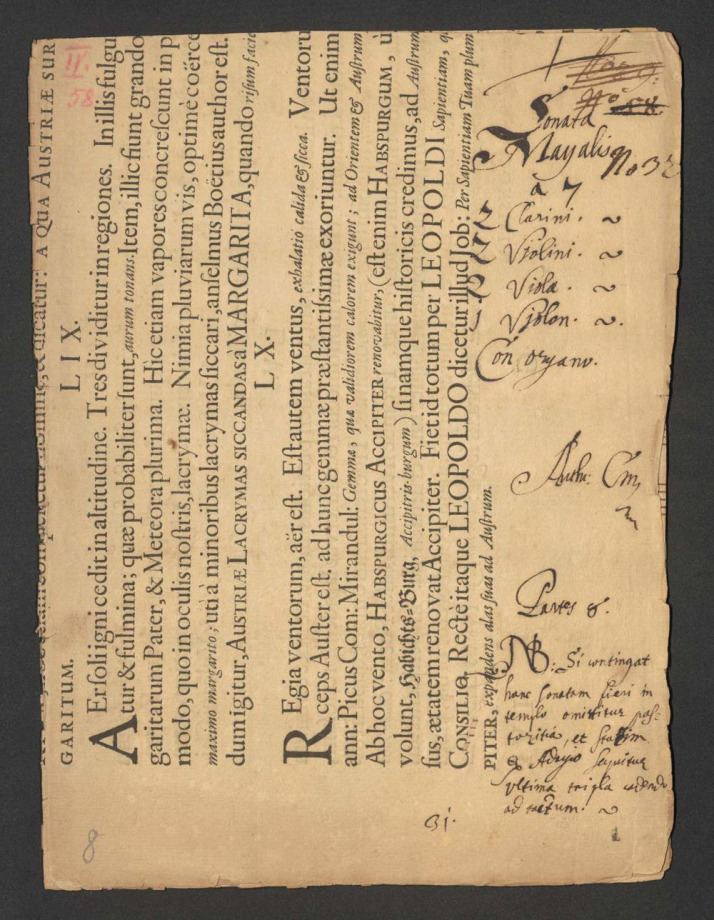 A QUA AUSTRIÆ SUR
GARITUM.
LIX.
AEr soli igni cedit in altitudine. Tres dividitur in regiones. In illis fulgu
tur & fulmina; quæ probabiliter sunt, aurum tonans. Item, illic fiunt grando
garitarum Pater, & Meteora plurima. Hic etiam vapores concrescunt in p
modo, quo in oculis nostris, lacrymæ. Nimia pluviarum vis, optimè coërce
maximo margarito; uti à minoribus lacrymas siccari, anselmus Boëtius author est.
dum igitur, AUSTRIÆ LACRYMAS SICCANDAS à MARGARITA, quando risum facie
LX.
REgia ventorum, aër est. Est autem ventus, exhalatio calida & sicca. Ventoru
ceps Auster est, ad hunc gemmæ præstantissimæ exoriuntur. Ut enim
ann: Picus Com: Mirandul: Gemmæ, quæ validiorem calorem exigunt; ad Orientem & Austrum
Ab hoc vento, HABSPURGICUS ACCIPITER renovabitur, (est enim HABSPURGUM, ù
volunt, Habichts=Burg, Accipitris-burgum) si namque historicis credimus, ad Austrum
sus, ætatem renovat Accipiter. Fiet id totum per LEOPOLDI Sapientiam, q
CONSILIA. Rectè itaque LEOPOLDO dicetur illud Job: Per Sapientiam Tuam plum
PITER, expandens alas suas ad Austrum.
II.
58
Sonata
Mayalis
No 32
a 7
2 Clarini.
Violini.
Viola.
Violon.
Con organo.
Auth:
Partes 8.
NB: Si contingat
hanc sonatam fieri in
templo omittitur pas-
toritia, et statim
ex Adagio sequitur
ultima tripla cadendo
ad tactum.
31.
8
1